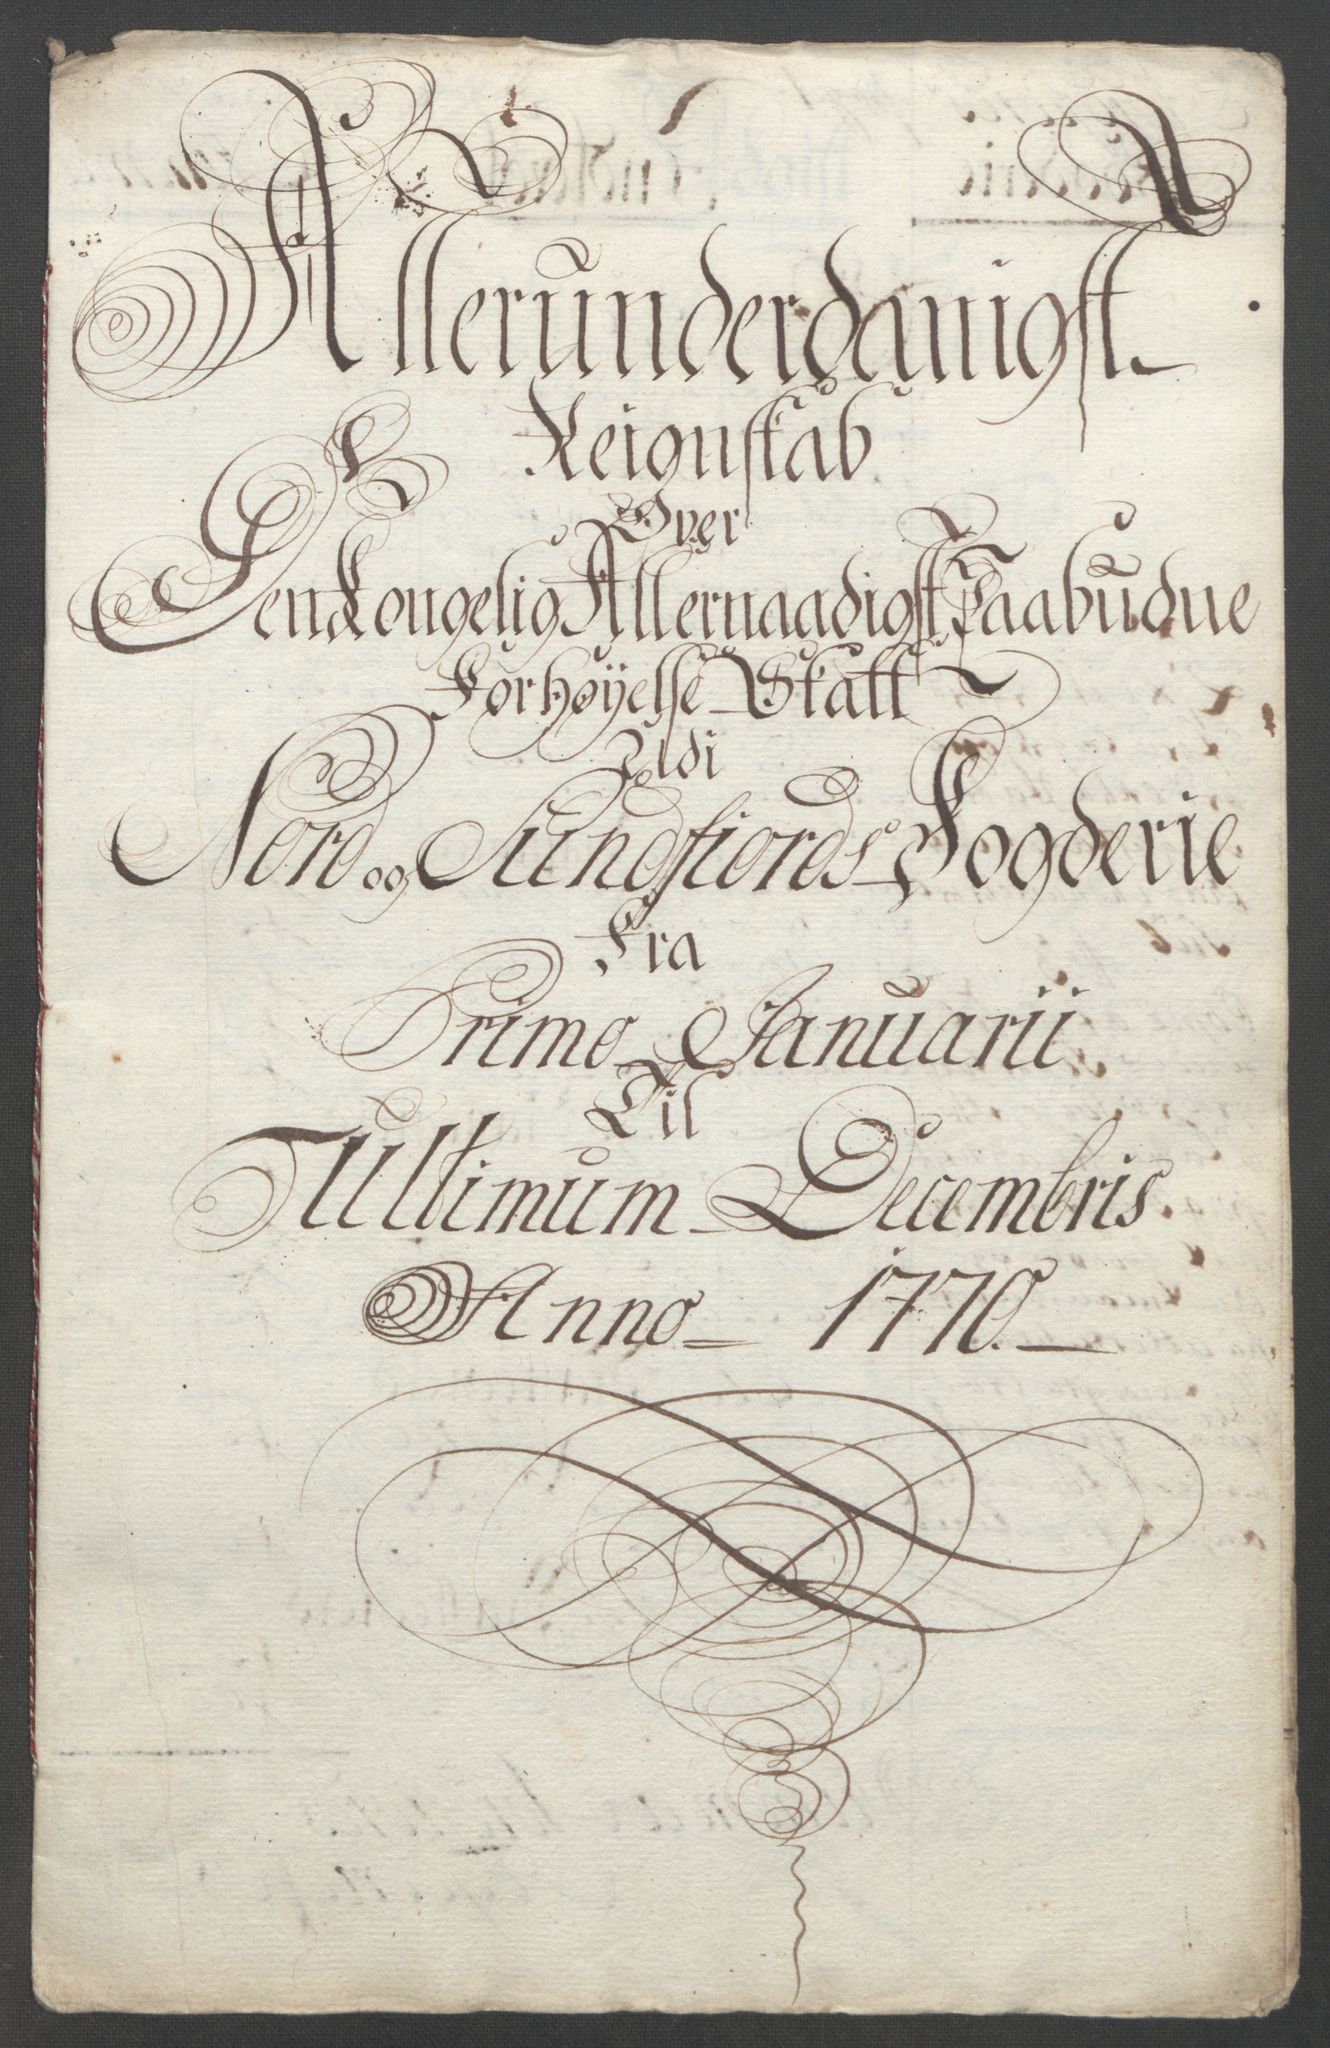 Allerunderdanigst
Reignskab
Over
Den Kongelig Allernaadigst Paabudne
Forhøyelse Skatt
Udi
Nord og Sundfiords Fogderie
Fra
Primo Januarii
Til
Ultimum Decembris
Anno 1770.